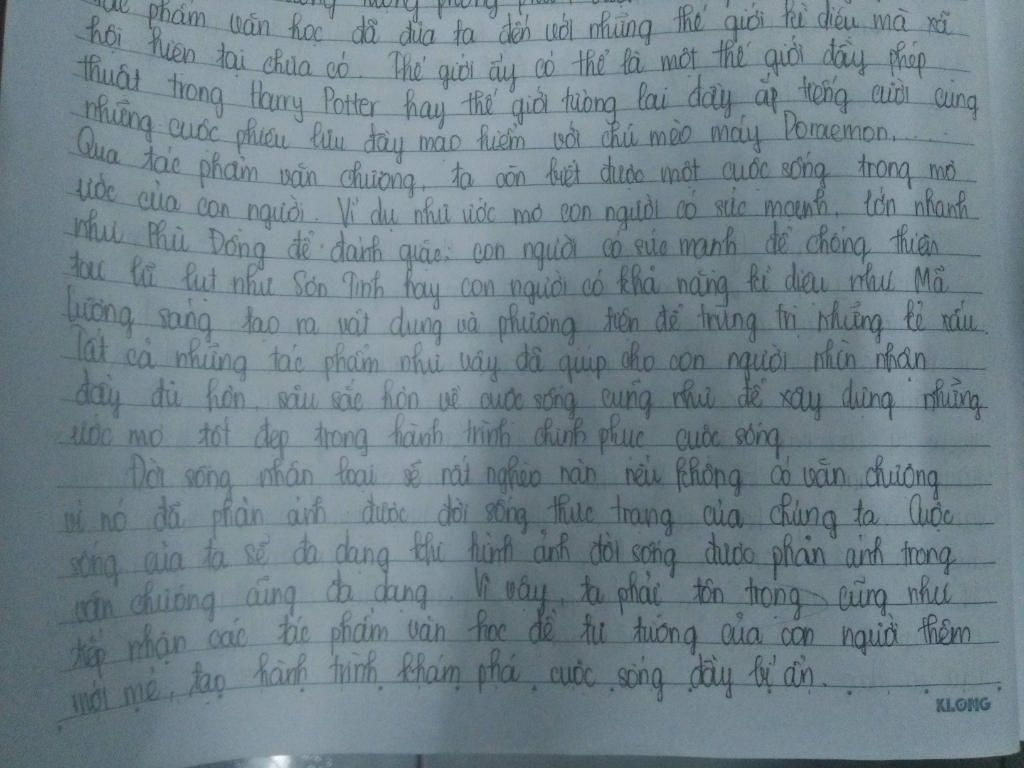 phẩm văn học đã đưa ta đến với những thế giới kì diệu mà xã
hội hiện tại chưa có. Thế giới ấy có thể là một thế giới đầy phép
thuật trong Harry Potter hay thế giới tương lai đầy ắp tiếng cười cùng
những cuộc phiêu lưu đầy mạo hiểm với chú mèo máy Doraemon...
Qua tác phẩm văn chương, ta còn biết được một cuộc sống trong mơ
ước của con người. Ví dụ như ước mơ con người có sức mạnh, lớn nhanh
như Phù Đổng để đánh giặc; con người có sức mạnh để chống thiên
tai lũ lụt như Sơn Tinh hay con người có khả năng kì diệu như Mã
Lương sáng tạo ra vật dụng và phương tiện để trừng trị những kẻ xấu.
Tất cả những tác phẩm như vậy đã giúp cho con người nhìn nhận
đầy đủ hơn, sâu sắc hơn về cuộc sống cũng như để xây dựng những
ước mơ tốt đẹp trong hành trình chinh phục cuộc sống
Đời sống nhân loại sẽ rất nghèo nàn nếu không có văn chương
vì nó đã phản ánh được đời sống thực trạng của chúng ta. Cuộc
sống của ta sẽ đa dạng khi hình ảnh đời sống được phản ánh trong
văn chương cũng đa dạng. Vì vậy, ta phải tôn trọng cũng như
tiếp nhận các tác phẩm văn học để tư tưởng của con người thêm
mới mẻ, tạo hành trình khám phá cuộc sống đầy bí ẩn.
KLONG